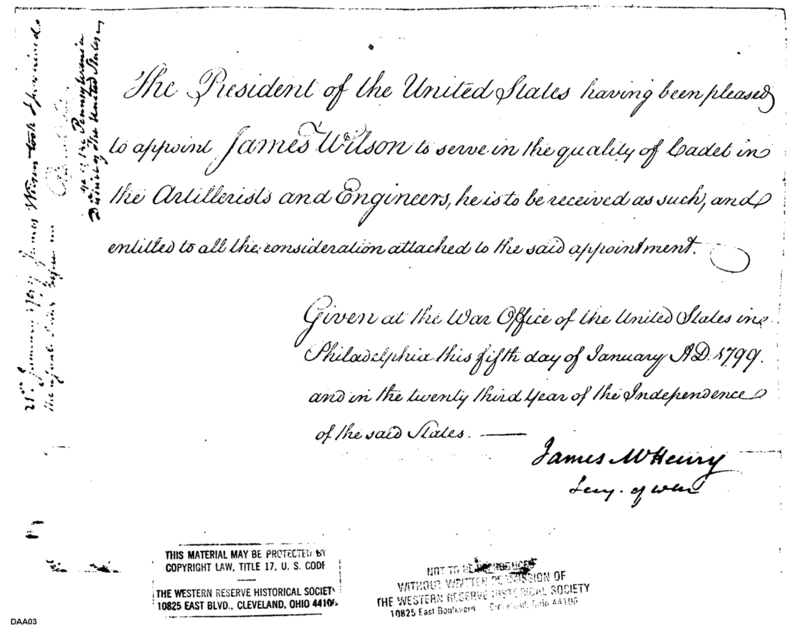 The President of the United States having been pleased
to appoint James Wilson to serve in the quality of Cadet in
the Artillerists and Engineers, he is to be received as such, and
entitled to all the consideration attached to the said appointment.
Given at the War Office of the United States in
Philadelphia this fifth day of January A.D. 1799.
and in the twenty third Year of the Independence
of the said States.
James McHenry
Secy. of War
21st January 1799 James Wilson took & subscribed
the before me
of the Pennsylvania
District of the United States
THIS MATERIAL MAY BE PROTECTED BY
COPYRIGHT LAW, TITLE 17, U. S. CODE
THE WESTERN RESERVE HISTORICAL SOCIETY
10825 EAST BLVD., CLEVELAND, OHIO 44106
NOT TO BE REPRODUCED
WITHOUT WRITTEN PERMISSION OF
THE WESTERN RESERVE HISTORICAL SOCIETY
10825 East Boulevard Cleveland, Ohio 44106
DAA03